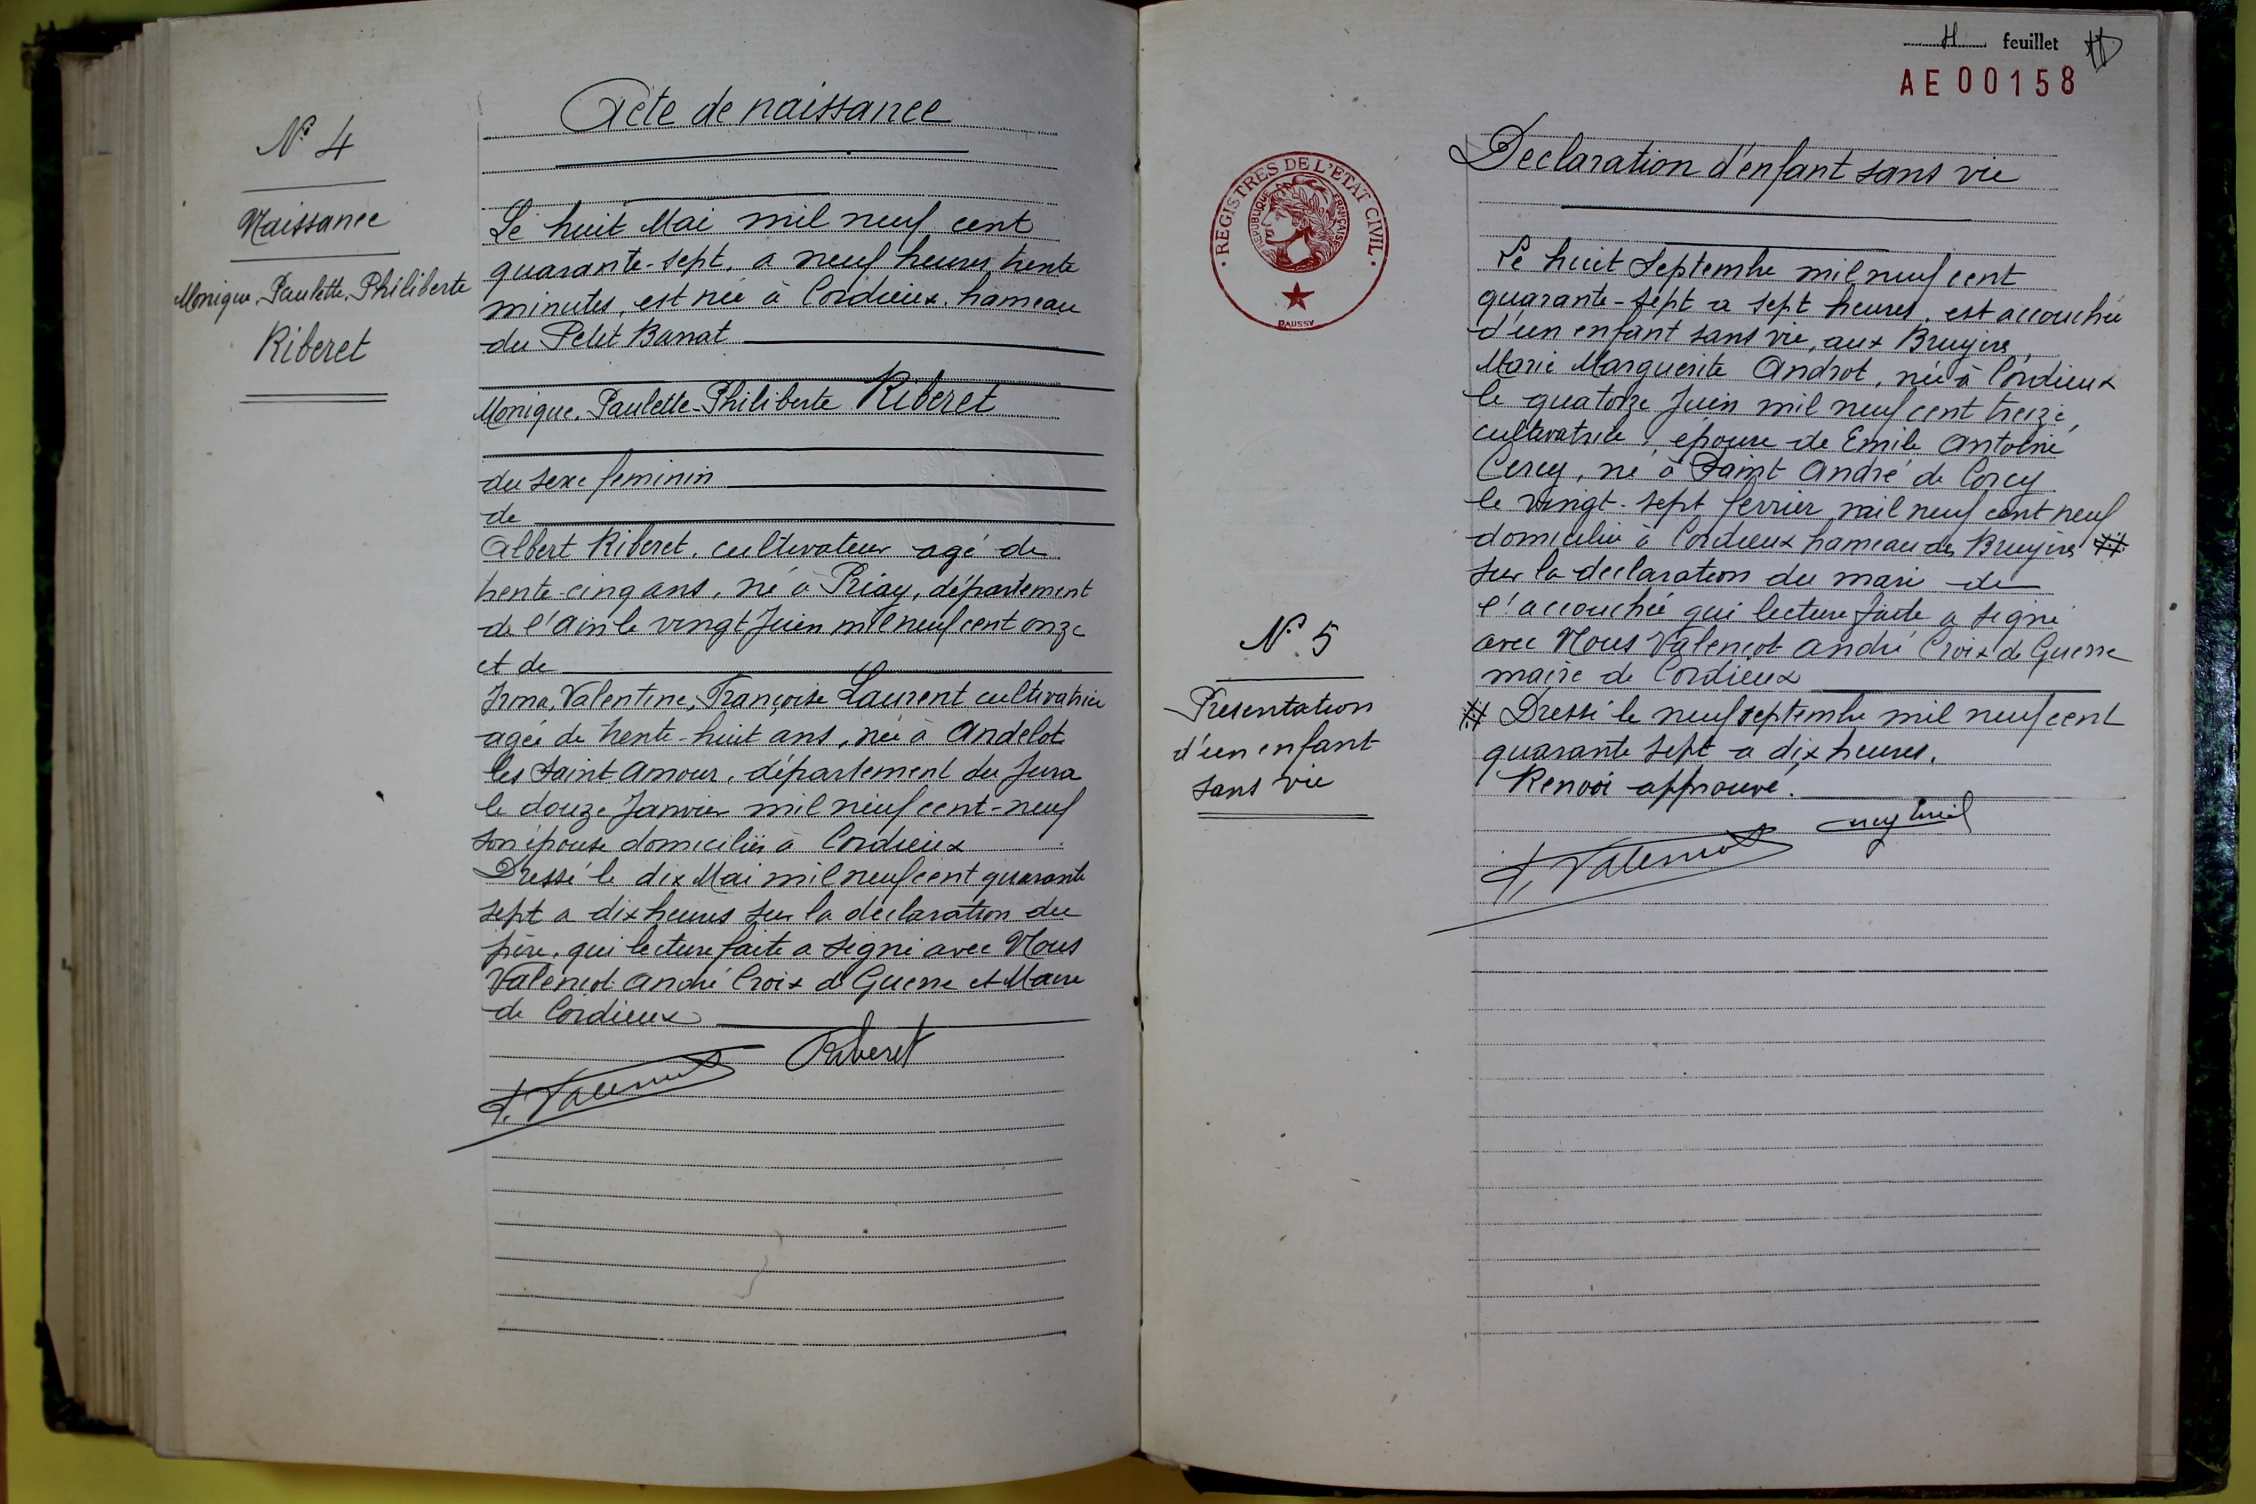 N° 4
Naissance
Monique, Paulette, Philiberte
Riberet
Acte de naissance
Le huit Mai mil neuf cent
quarante-sept, a neuf heures trente
minutes, est née à Cordieux, hameau
du Petit Banat
Monique, Paulette Philiberte Riberet
du sexe feminin
de
Albert Riberet, cultivateur agé de
trente-cinq ans, né à Priay, département
de l'Ain le vingt Juin mil neuf cent onze
et de
Irma, Valentine, Françoise Laurent cultivatrice
agée de trente-huit ans, née à Andelot
les Saint Amour, département du Jura
le douze Janvier mil neuf cent-neuf
son épouse domiciliés à Cordieux
Dressé le dix Mai mil neuf cent quarante
sept a dix heures sur la déclaration du
père, qui lecture faite a signé avec Nous
Valençot André Croix de Guerre et Maire
de Cordieux
Riberet
A. Valençot
4 feuillet
AE 00158
REGISTRES DE L'ETAT CIVIL
REPUBLIQUE FRANÇAISE
DAUSSY
N° 5
Presentation
d'un enfant
sans vie
Declaration d'enfant sans vie
Le huit Septembre mil neuf cent
quarante-sept a sept heures, est accouchée
d'un enfant sans vie, aux Bruyères
Marie Marguerite Androt, née à Cordieux
le quatorze Juin mil neuf cent treize,
cultivatrice, épouse de Emile Antoine
Cercy, né à Saint André de Corcy
le vingt-sept février mil neuf cent neuf
domiciliés à Cordieux hameau des Bruyères #
sur la déclaration du mari de
l'accouchée qui lecture faite a signé
avec Nous Valençot André Croix de Guerre
maire de Cordieux
# Dressé le neuf septembre mil neuf cent
quarante sept a dix heures.
Renvoi approuvé.
A. Valençot